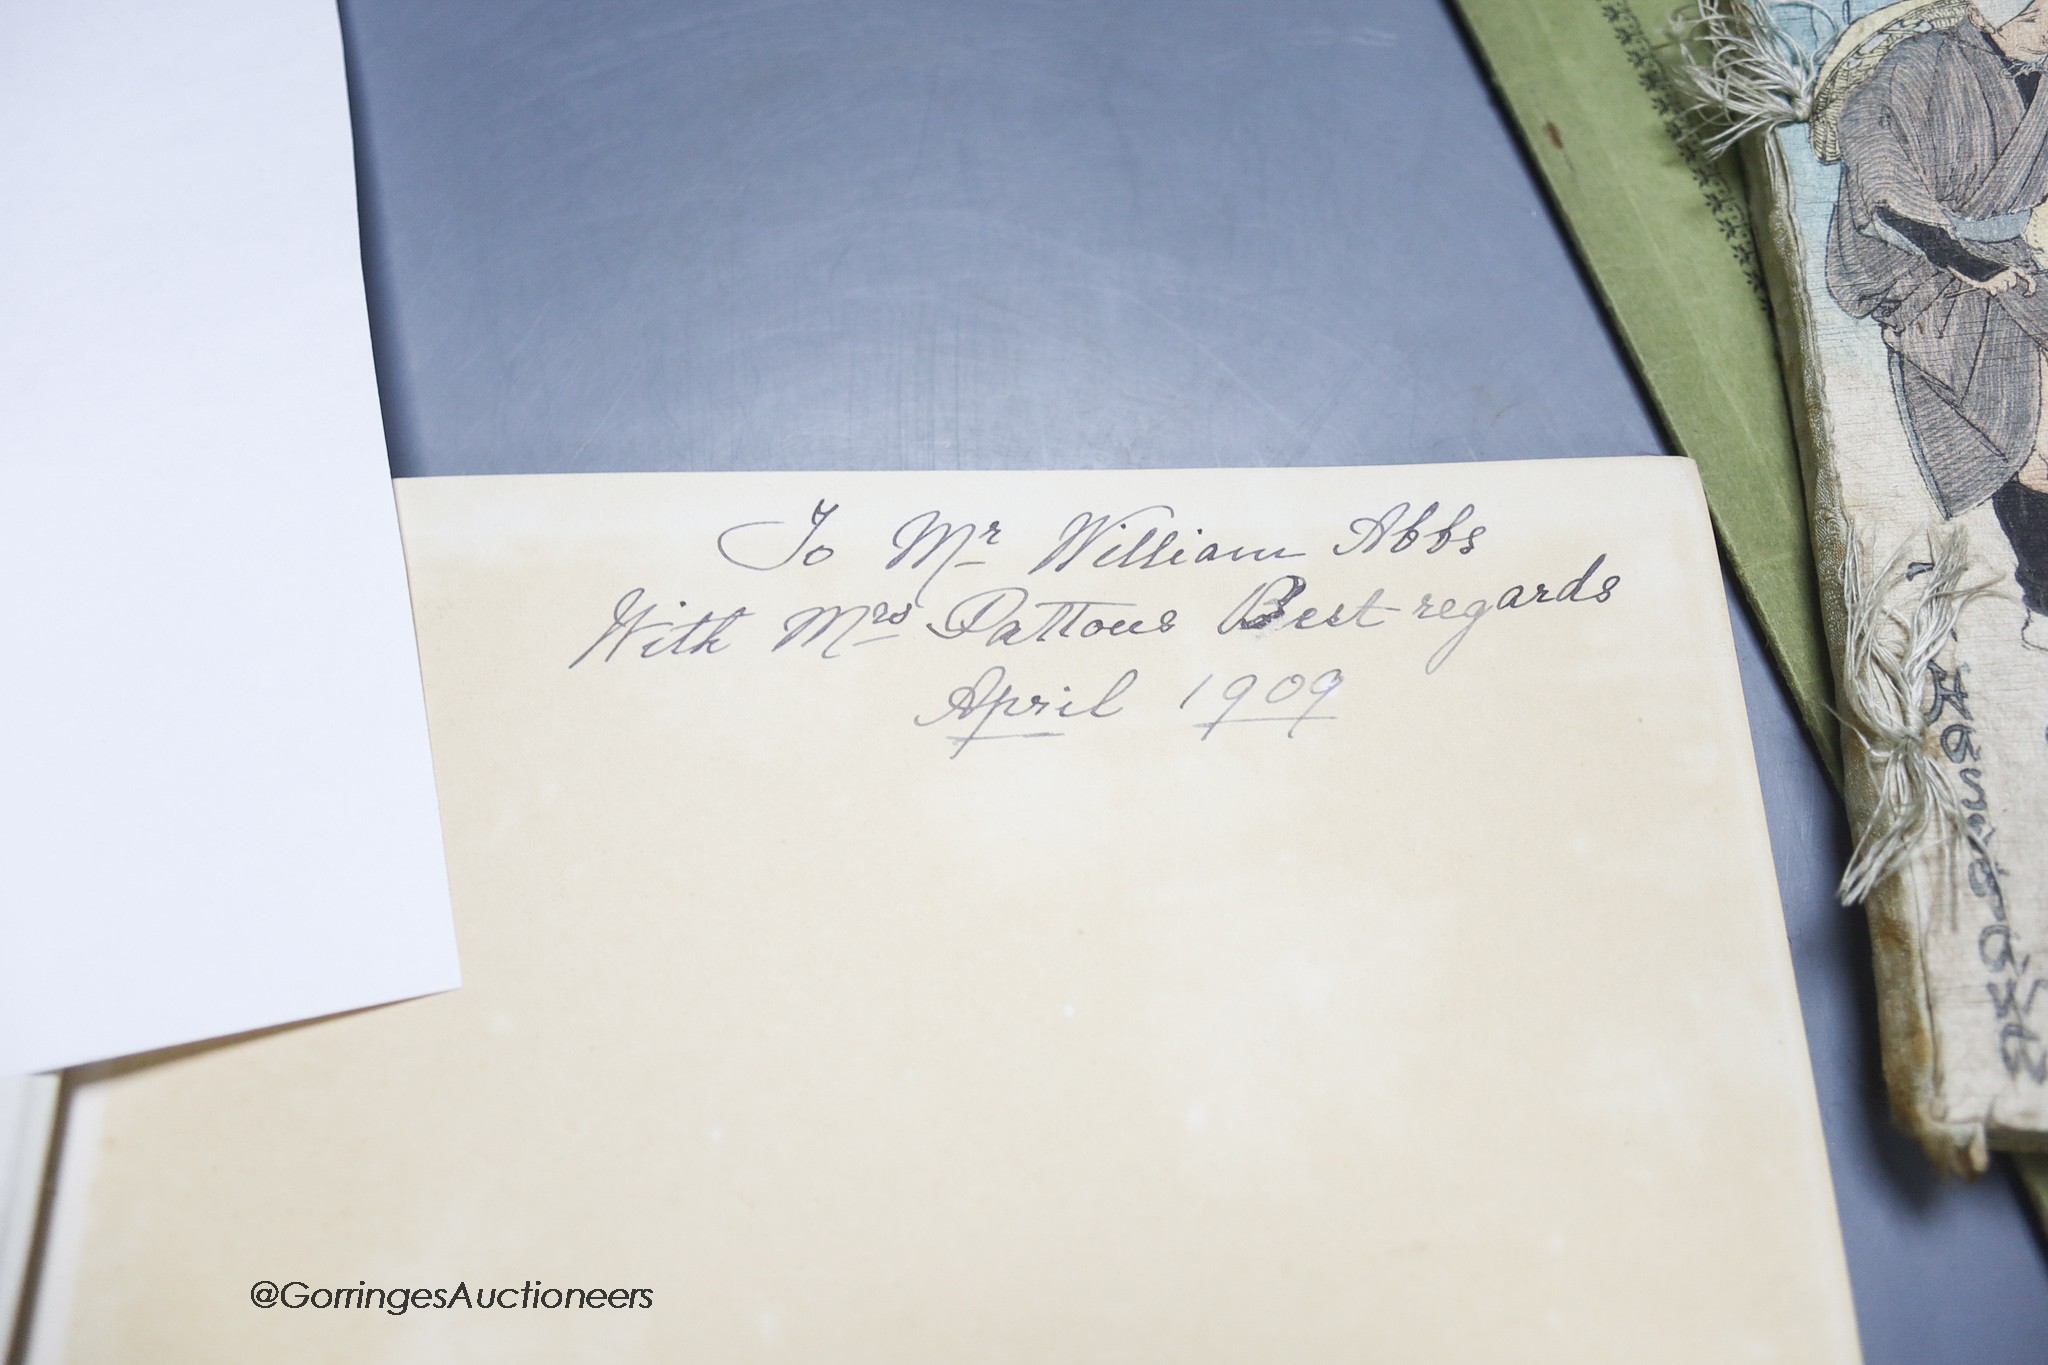 To Mr William Abbs
With Mrs Pattons Best regards
April 1909
@GorringesAuctioneers